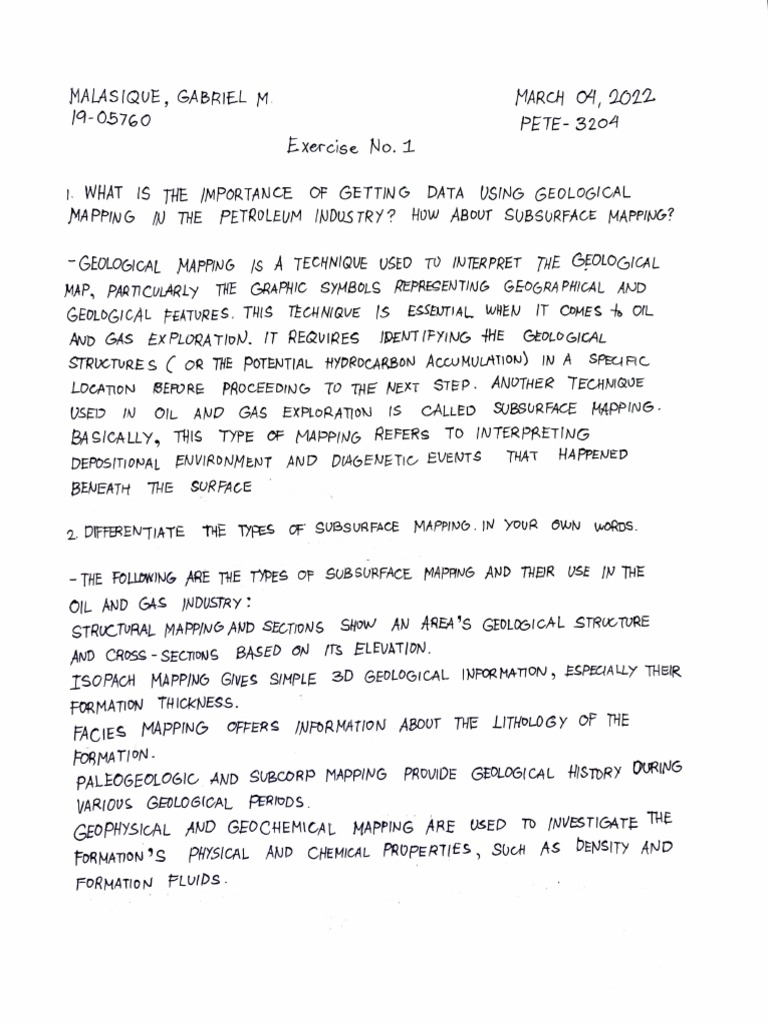 MALASIQUE, GABRIEL M. MARCH 04, 2022
19-05760 PETE-3204
Exercise No. 1
1. WHAT IS THE IMPORTANCE OF GETTING DATA USING GEOLOGICAL
MAPPING IN THE PETROLEUM INDUSTRY? HOW ABOUT SUBSURFACE MAPPING?
- GEOLOGICAL MAPPING IS A TECHNIQUE USED TO INTERPRET THE GEOLOGICAL
MAP, PARTICULARLY THE GRAPHIC SYMBOLS REPRESENTING GEOGRAPHICAL AND
GEOLOGICAL FEATURES. THIS TECHNIQUE IS ESSENTIAL WHEN IT COMES to OIL
AND GAS EXPLORATION. IT REQUIRES IDENTIFYING the GEOLOGICAL
STRUCTURES ( OR THE POTENTIAL HYDROCARBON ACCUMULATION) IN A SPECIFIC
LOCATION BEFORE PROCEEDING TO THE NEXT STEP. ANOTHER TECHNIQUE
USED IN OIL AND GAS EXPLORATION IS CALLED SUBSURFACE MAPPING.
BASICALLY, THIS TYPE OF MAPPING REFERS TO INTERPRETING
DEPOSITIONAL ENVIRONMENT AND DIAGENETIC EVENTS THAT HAPPENED
BENEATH THE SURFACE
2. DIFFERENTIATE THE TYPES OF SUBSURFACE MAPPING. IN YOUR OWN WORDS.
- THE FOLLOWING ARE THE TYPES OF SUBSURFACE MAPPING AND THEIR USE IN THE
OIL AND GAS INDUSTRY:
STRUCTURAL MAPPING AND SECTIONS SHOW AN AREA'S GEOLOGICAL STRUCTURE
AND CROSS-SECTIONS BASED ON ITS ELEVATION.
ISOPACH MAPPING GIVES SIMPLE 3D GEOLOGICAL INFORMATION, ESPECIALLY THEIR
FORMATION THICKNESS.
FACIES MAPPING OFFERS INFORMATION ABOUT THE LITHOLOGY OF THE
FORMATION.
PALEOGEOLOGIC AND SUBCORP MAPPING PROVIDE GEOLOGICAL HISTORY DURING
VARIOUS GEOLOGICAL PERIODS.
GEOPHYSICAL AND GEOCHEMICAL MAPPING ARE USED TO INVESTIGATE THE
FORMATION'S PHYSICAL AND CHEMICAL PROPERTIES, SUCH AS DENSITY AND
FORMATION FLUIDS.